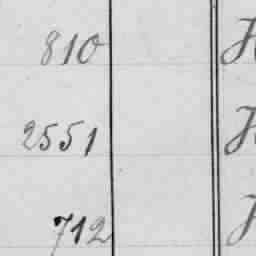 810
2551
712